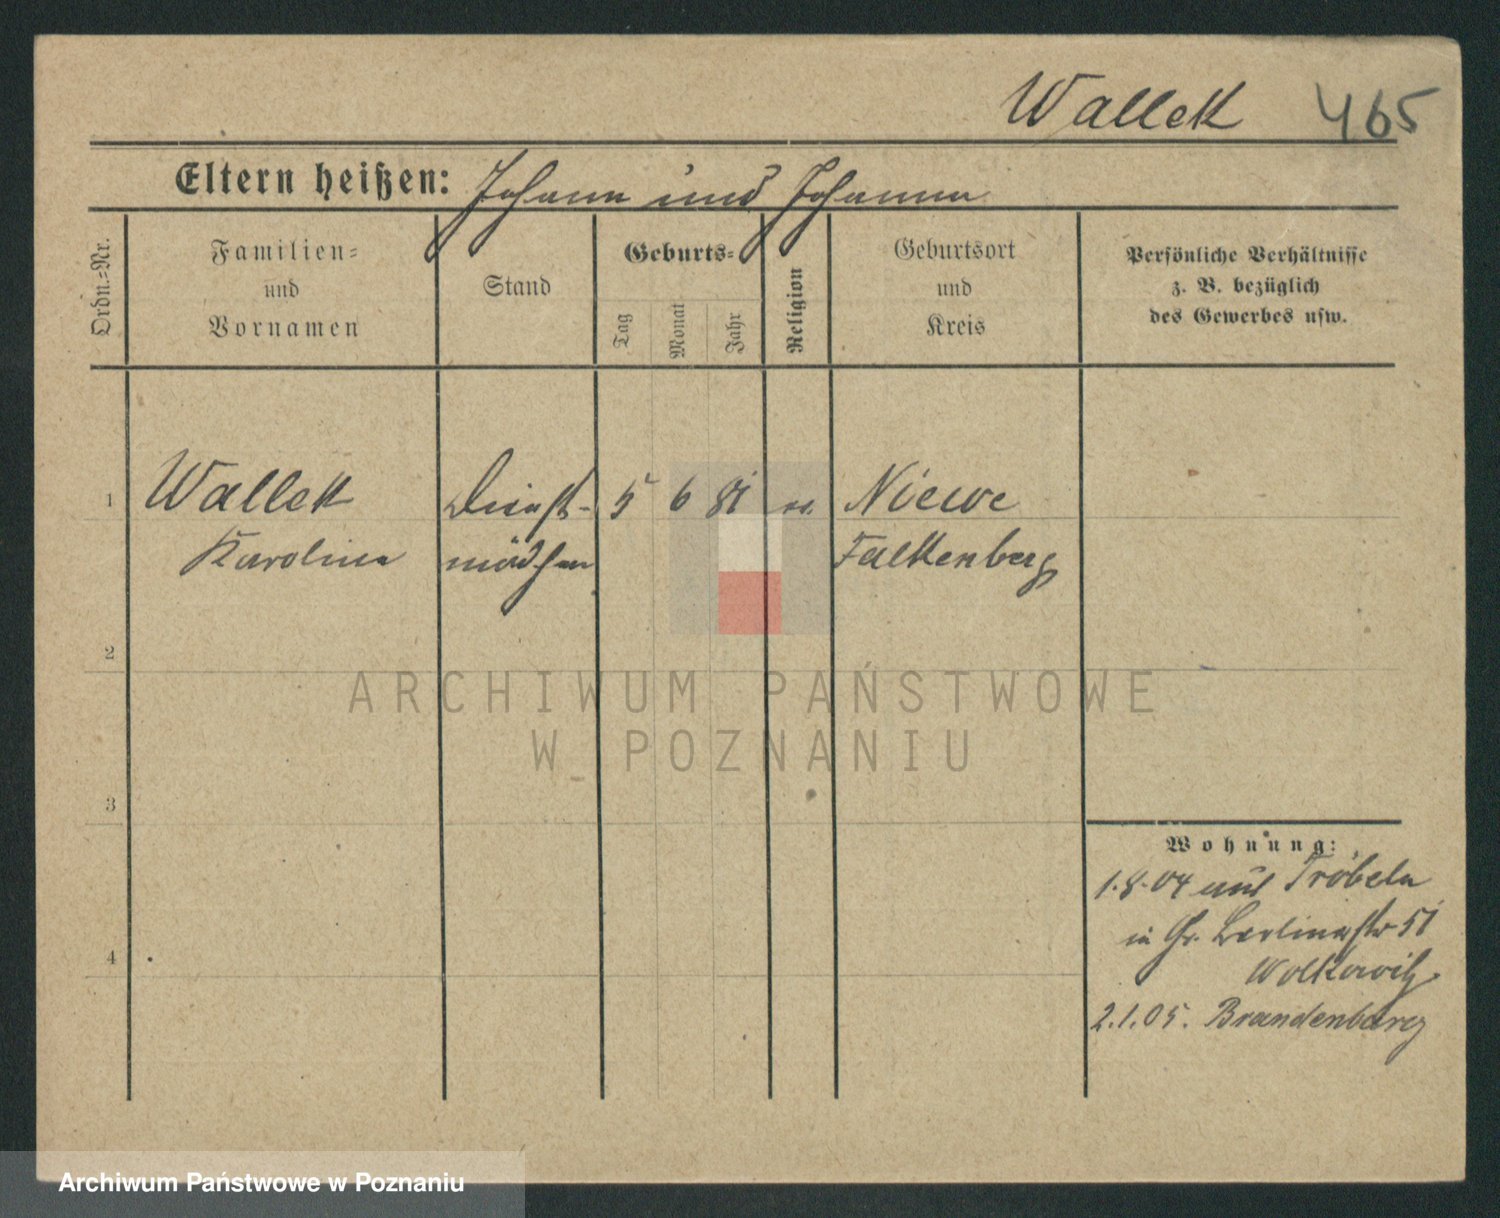 Wallek 465
Eltern heißen: Johann und Johanna
Ordn.=Nr.
Familien=
und
Vornamen
Stand
Geburts=
Tag
Monat
Jahr
Religion
Geburtsort
und
Kreis
Persönliche Verhältnisse
z. B. bezüglich
des Gewerbes usw.
1 Wallek Dienst- 5 6 81 Niewe
Karolina mädchen Falkenberg
2
ARCHIWUM PAŃSTWOWE
W POZNANIU
3
Wohnung:
1.8.04 aus Tröbeln
in Gr. Berlinerstr 51
4
Wolkowitz
2.1.05. Brandenburg
Archiwum Państwowe w Poznaniu